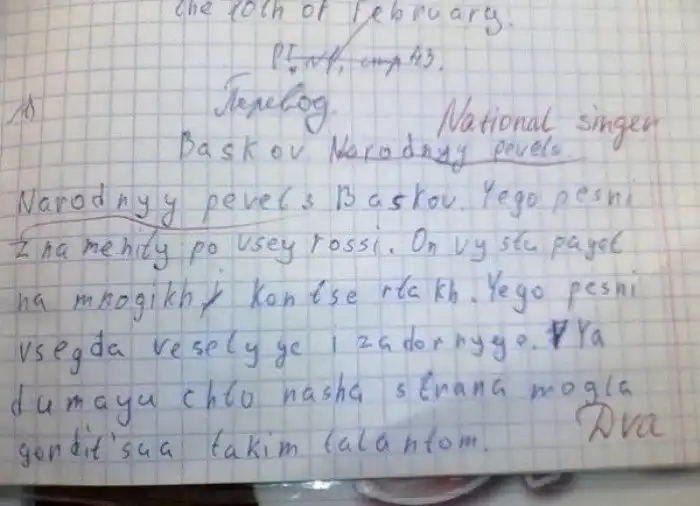 the 10th of February.
Перевод.
National singer
Baskov Narodnyy pevets.
Narodnyy pevets Baskov. Yego pesni
znamenity po vsey rossi. On vystupayet
na mnogikh kontsertakh. Yego pesni
vsegda veselyye i zadornyye. Ya
dumayu chto nasha strana mogla
gordit'saa takim talantom.
Dva